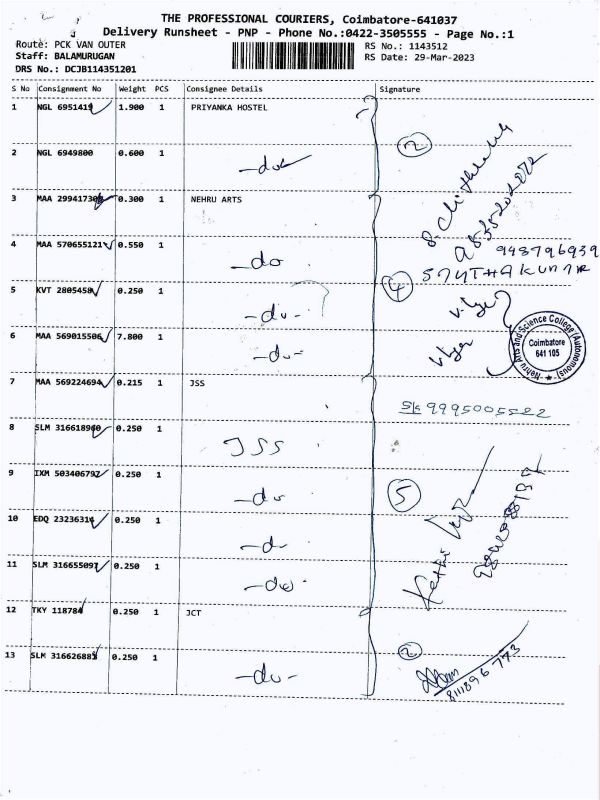 THE PROFESSIONAL COURIERS, Coimbatore-641037
Delivery Runsheet - PNP - Phone No.:0422-3505555 - Page No.:1
Route: PCK VAN OUTER
Staff: BALAMURUGAN
DRS No.: DCJB114351201
RS No.: 1143512
RS Date: 29-Mar-2023
S No Consignment No Weight PCS Consignee Details Signature
1 NGL 6951419 1.900 1 PRIYANKA HOSTEL
2 NGL 6949800 0.600 1 -do-
②
3 MAA 0.300 1 NEHRU ARTS
4 MAA 570655121 0.550 1 -do
④
5 KVT 2805458 0.250 1 -do-
6 MAA 569015506 7.800 1 -do-
Nehru Arts and Science College (Autonomous)
Coimbatore
641 105
7 MAA 569224694 0.215 1 JSS
9995005522
8 SLM 316618960 0.250 1 JSS
9 IXM 503406797 0.250 1 -do
⑤
10 EDQ 23236314 0.250 1 -do-
11 SLM 316655097 0.250 1 -do-
12 TKY 118784 0.250 1 JCT
13 SLM 316626883 0.250 1 -do-
②
8111896773